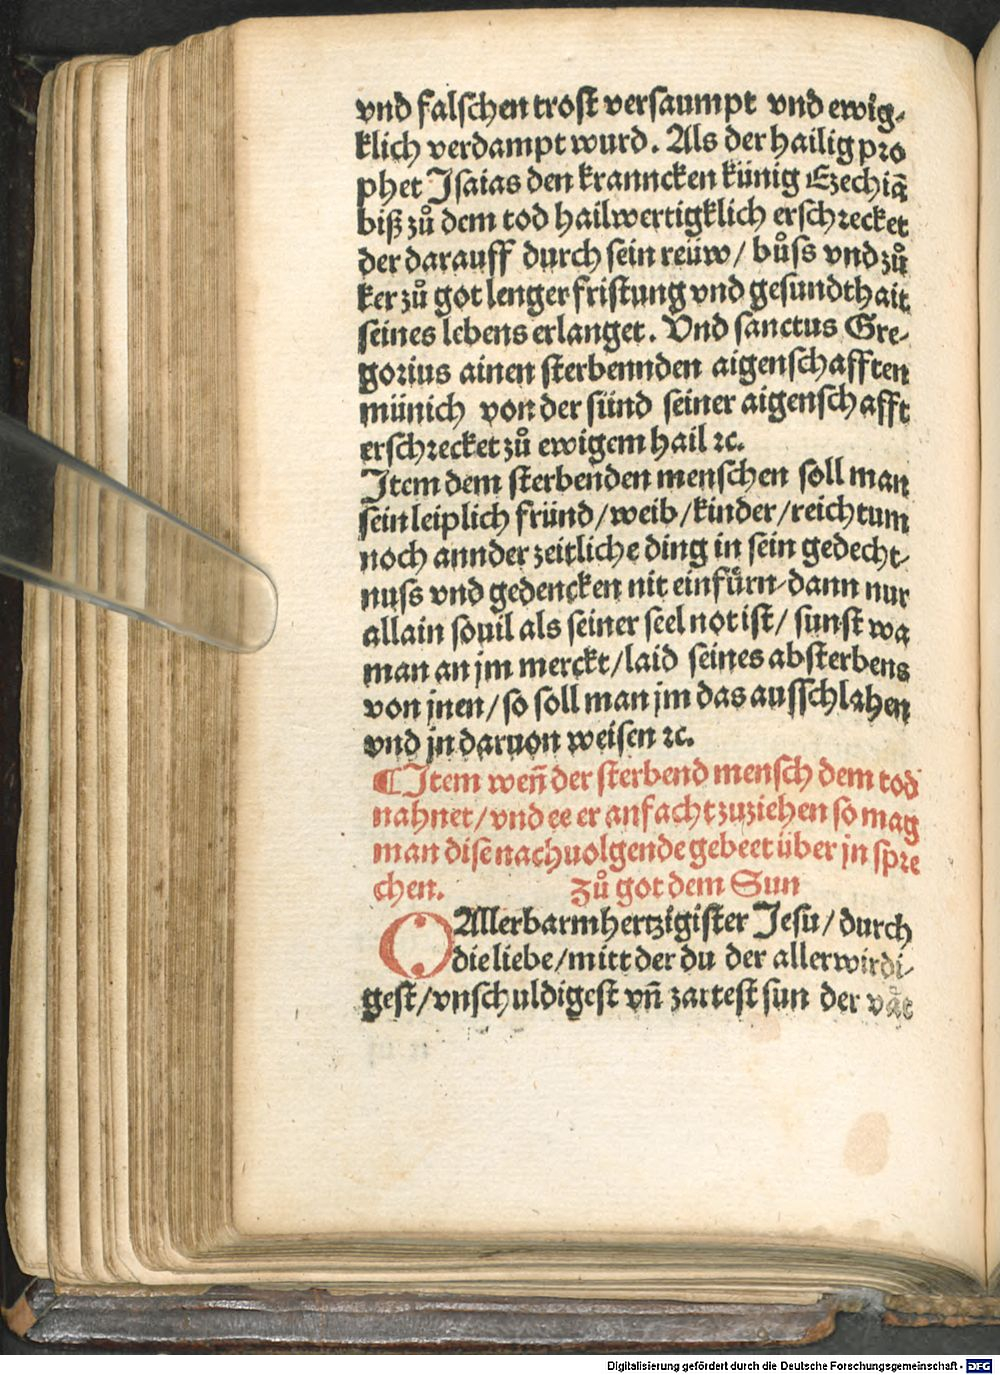 vnd falschen trost versaumpt vnd ewig-
klich verdampt wurd. Als der hailig pro
phet Jsaias den krancken künig Ezechiā
biß zů dem tod hailwertigklich erschrecket
der darauff durch sein reüw/ bůss vnd zů
ker zů got lenger fristung vnd gesundthait
seines lebens erlanget. Vnd sanctus Gre-
gorius ainen sterbennden aigenschafften
münich von der sünd seiner aigenschafft
erschrecket zů ewigem hail ⁊c.
Jtem dem sterbenden menschen soll man
sein leiplich fründ/weib/kinder/reichtum
noch annder zeitliche ding in sein gedecht-
nuss vnd gedencken nit einfůrn-dann nur
allain souil als seiner seel not ist/ sunst wa
man an jm merckt/laid seines absterbens
von jnen/so soll man jm das ausschlahen
vnd jn daruon weisen ⁊c.
¶Jtem weñ der sterbend mensch dem tod
nahnet/vnd ee er anfacht zuziehen so mag
man dise nachuolgende gebeet über jn spre
chen. Zů got dem Sun
O Allerbarmhertzigister Jesu/ durch
die liebe/mitt der du der allerwirdi-
gest/vnschuldigest vñ zartest sun der
Digitalisierung gefördert durch die Deutsche Forschungsgemeinschaft - DFG